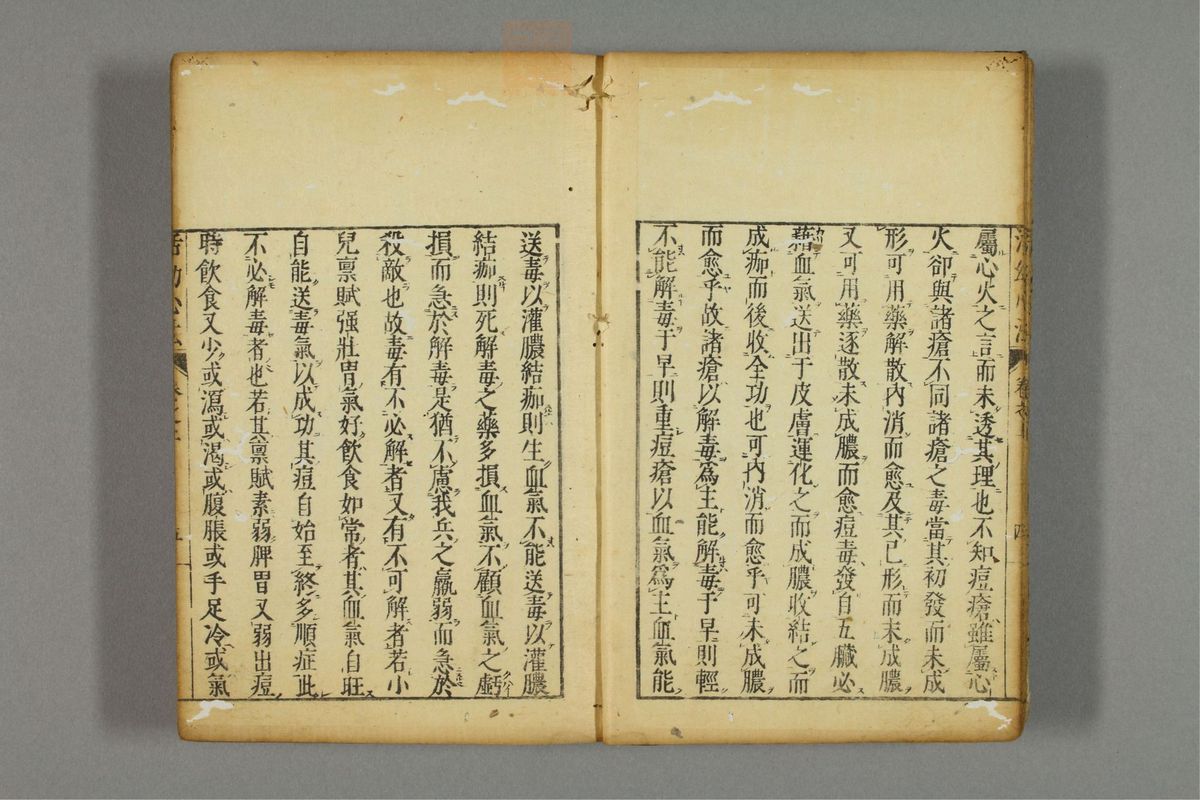 屬心火之言而未透其理也不知痘瘡雖屬心
火卻與諸瘡不同諸瘡之毒當其初發而未成
形可用藥解散內消而愈及其已形而未成膿
又可用藥逐散未成膿而愈痘毒發自五臟必
藉血氣送出于皮膚運化之而成膿收結之而
成痂而後收全功也可內消而愈乎可未成膿
而愈乎故諸瘡以解毒爲主能解毒于早則輕
不能解毒于早則重痘瘡以血氣爲主血氣能
送毒以灌膿結痂則生血氣不能送毒以灌膿
結痂則死解毒之藥多損血氣不顧血氣之虧
損而急於解毒是猶不慮我兵之羸弱而急於
殺敵也故毒有不必解者又有不可解者若小
兒禀賦强壯胃氣好飲食如常者其血氣自旺
自能送毒氣以成功其痘自始至終多順症此
不必解毒者也若其禀賦素弱脾胃又弱出痘
時飲食又少或瀉或渴或腹脹或手足冷或氣